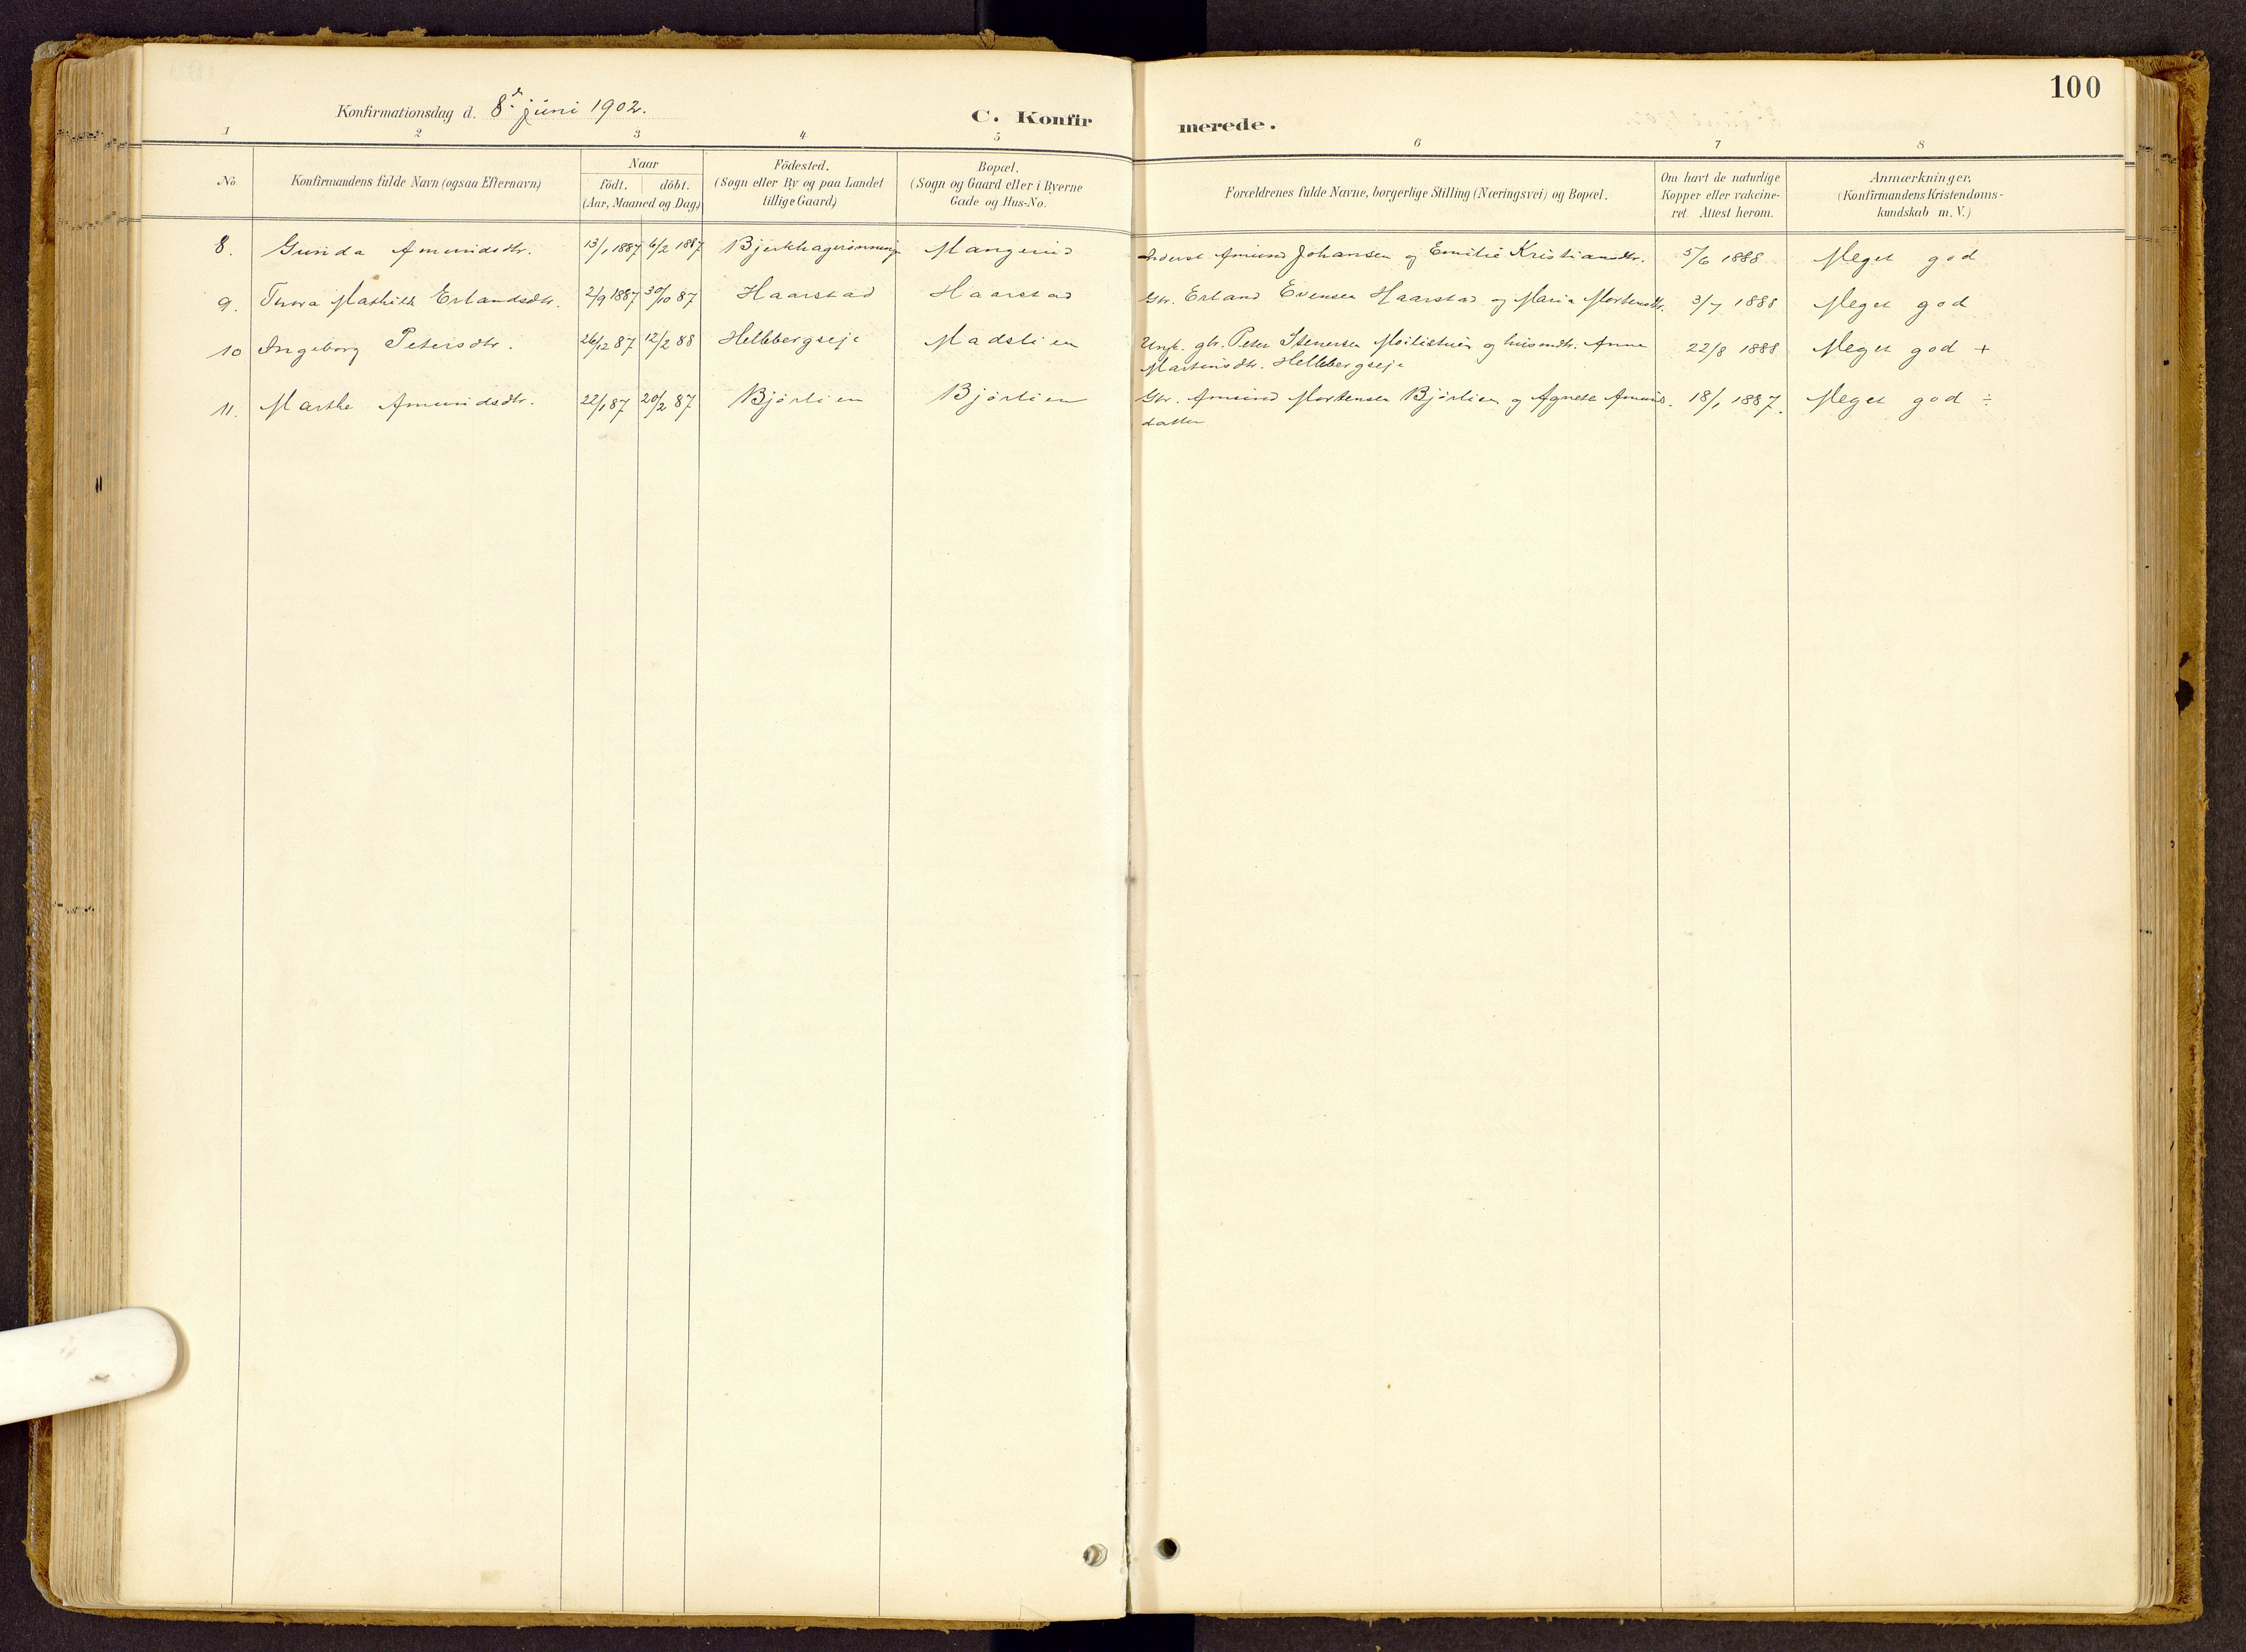 100
Konfirmationsdag d. 8de juni 1902.
C. Konfirmerede.
1 2 3 4 5 6 7 8
No
Konfirmandens fulde Navn (ogsaa Efternavn)
Naar
födt. döbt.
(Aar, Maaned og Dag.)
Födested.
(Sogn eller By og paa Landet
tillige Gaard.)
Bopæl.
(Sogn og Gaard eller i Byerne
Gade og Hus-No.
Forældrenes fulde Navne, borgerlige Stilling (Næringsvei) og Bopæl.
Om havt de naturlige
Kopper eller vakcine-
ret. Attest herom.
Anmærkninger,
(Konfirmandens Kristendoms-
kundskab m. V.)
8. Gunda Amundsdtr. 13/1 1887 6/2 1887 Bjerkhagerønning Mangerud Amund Johansen og Emilie Kristiansdtr. 5/6 1888 Meget god
9. Mathilde Erlandsdtr. 2/9 1887 30/10 87 Haarstad Haarstad Gbr. Erland Evensen Haarstad og Maria Mortensdtr. 3/7 1888 Meget god
10 Ingeborg Petersdtr. 26/12 87 12/2 88 Hellebergseje Madslien Ungk. gbr. Peter Stenersen og husmdtr. Anne
Martinsdtr. Hellebergseje 22/8 1888 Meget god +
11. Marthe Amundsdtr. 22/1 87 20/2 87 Bjørlien Bjørlien Gbr. Amund Mortensen Bjørlien og Agnete Amunds-
datter 18/1 1887. Meget god ÷